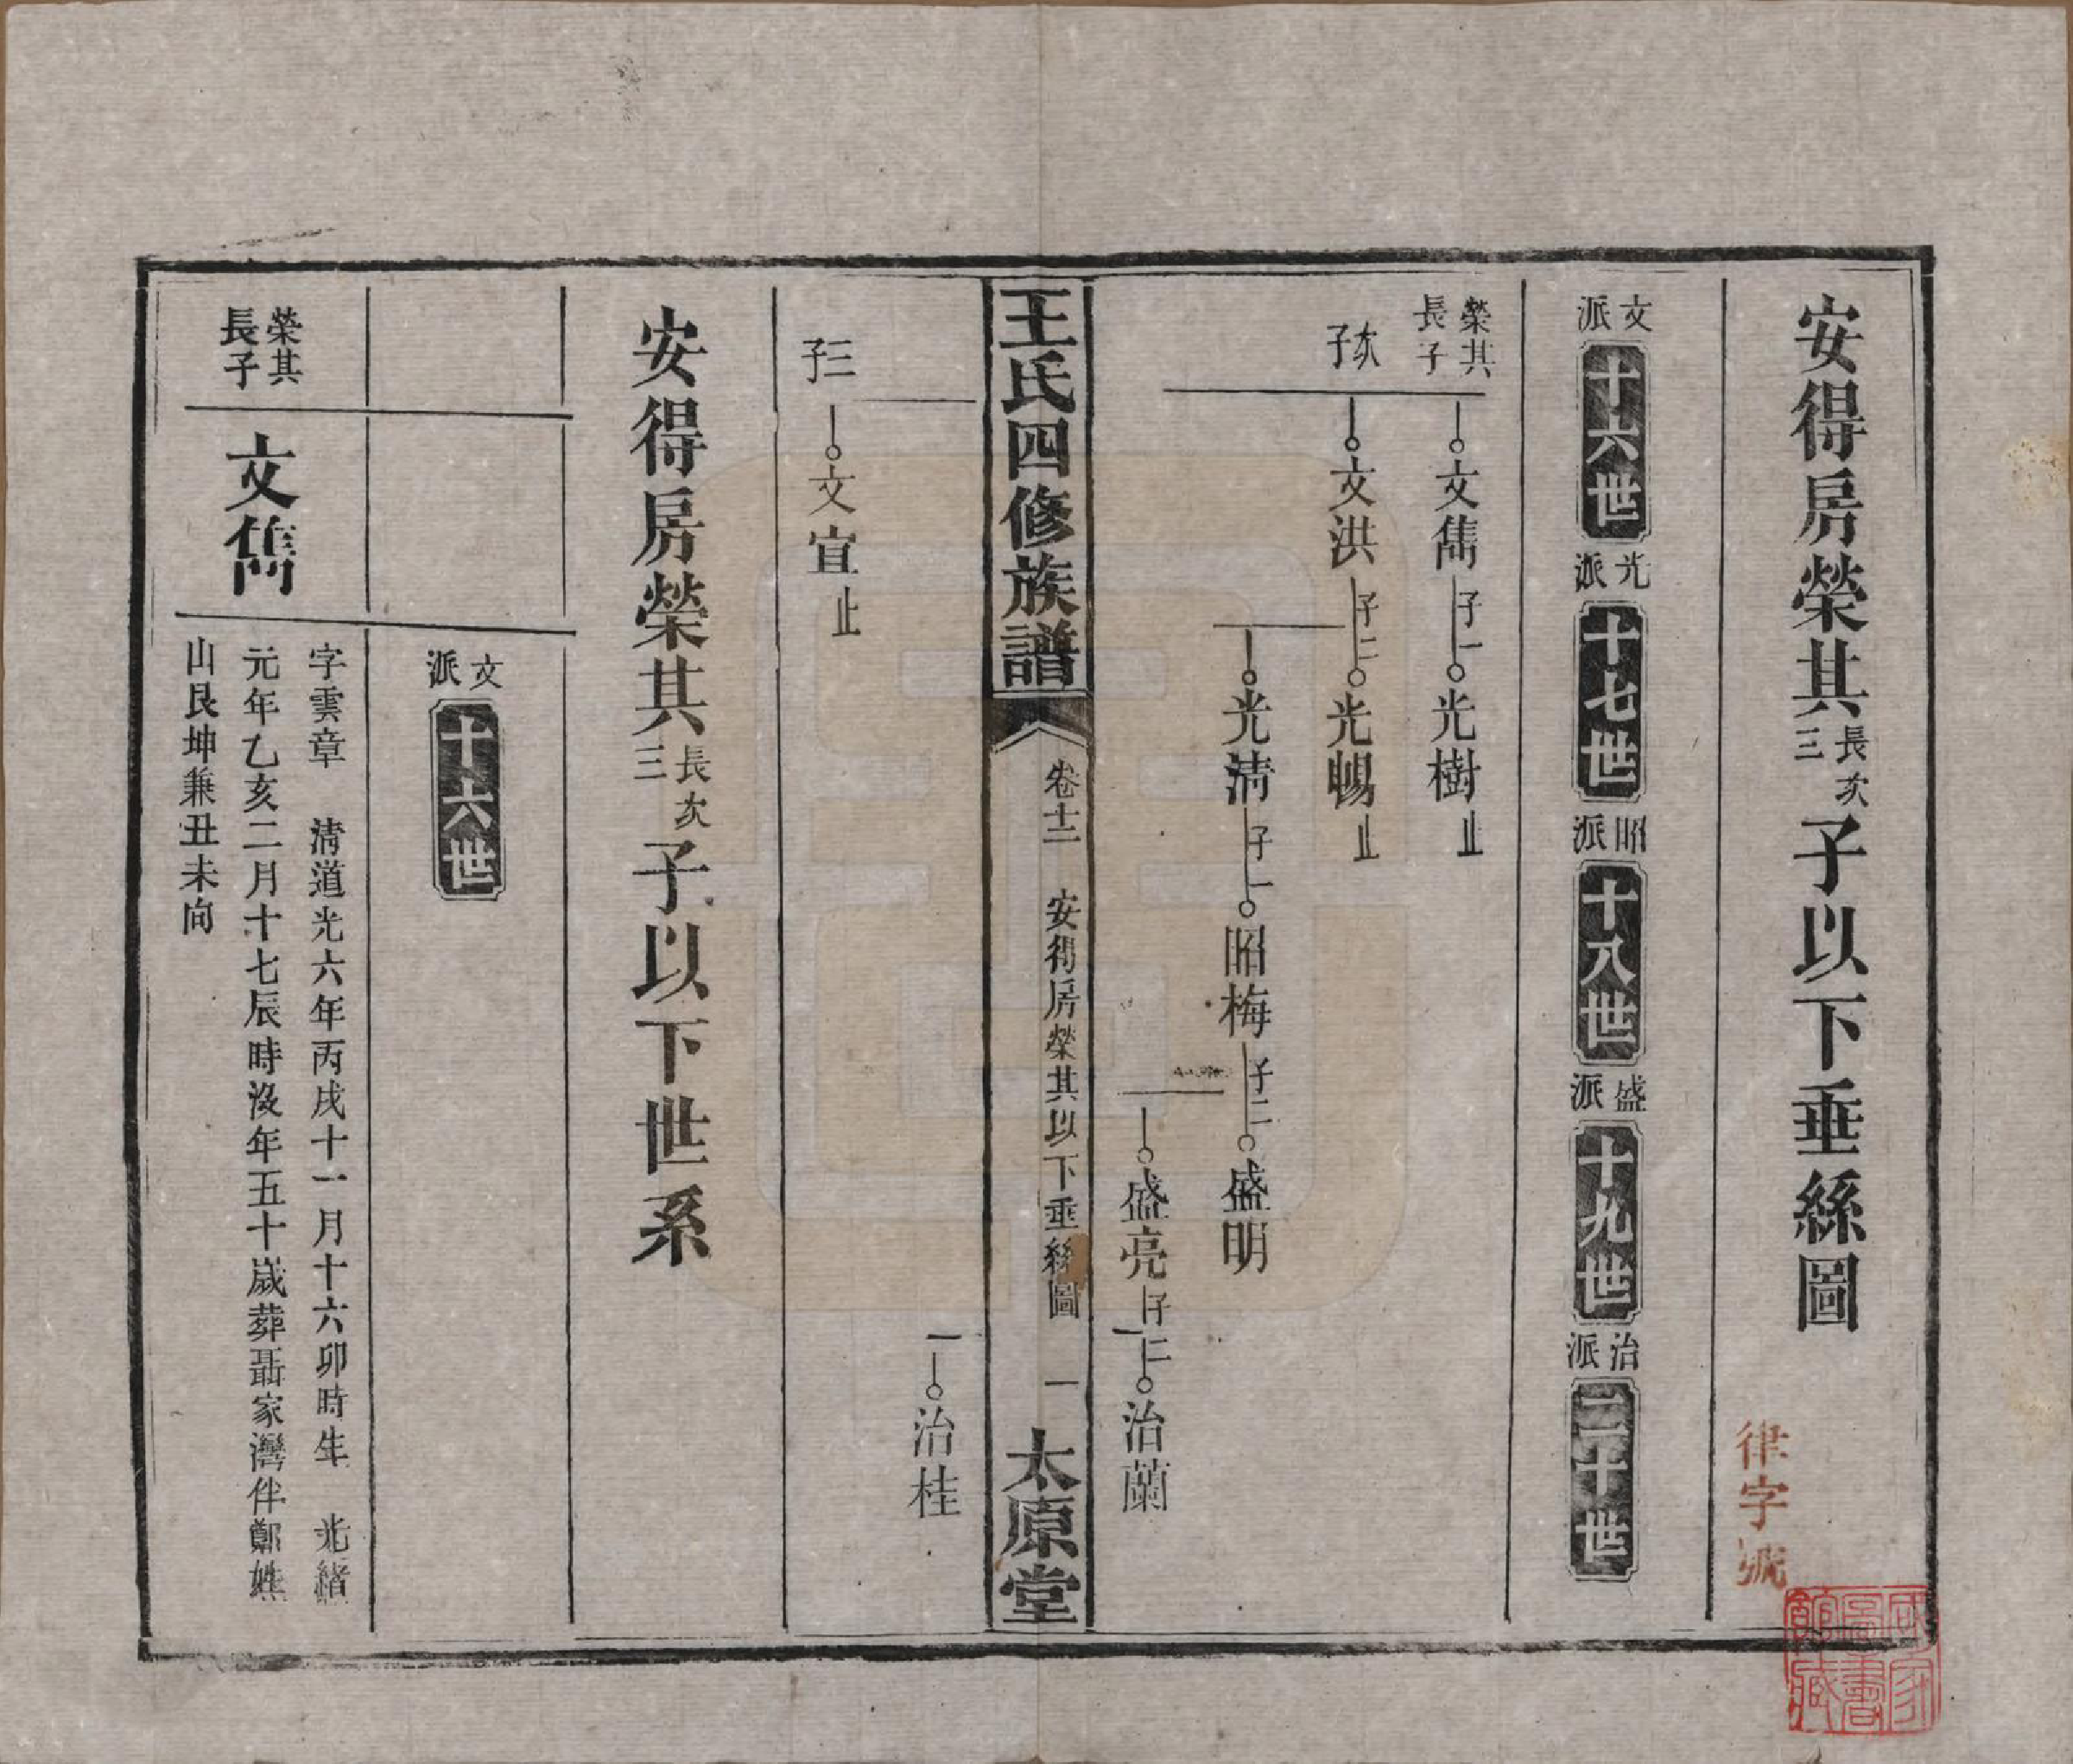 安得房榮其長次三子以下垂絲圖
律字號
國家圖書館藏
文派 十六世 光派 十七世 昭派 十八世 盛派 十九世 治派 二十世
榮其長子 文雋 子一 光樹 止
次子 文洪 子二 光暘 止
光淸 子一 昭梅 子二 盛明
盛亮 子二 治蘭
王氏四修族譜 卷十二 安得房榮其以下垂絲圖 一 太原堂
一 治桂
三子 文宣 止
安得房榮其長次三子以下世系
文派 十六世
榮其長子 文雋
字雲章 淸道光六年丙戌十一月十六卯時生 光緒
元年乙亥二月十七辰時沒年五十歲葬聶家灣伴鄭姓
山艮坤兼丑未向